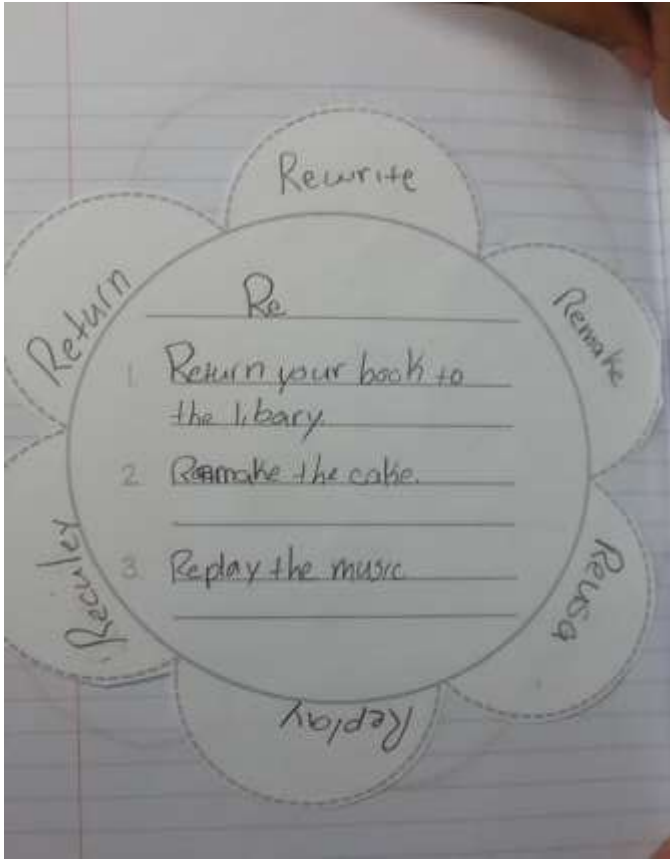 Rewrite
Remake
Reusa
Replay
Reculey
Return
Re
1. Return your book to
the libary.
2. Remake the cake.
3. Replay the music